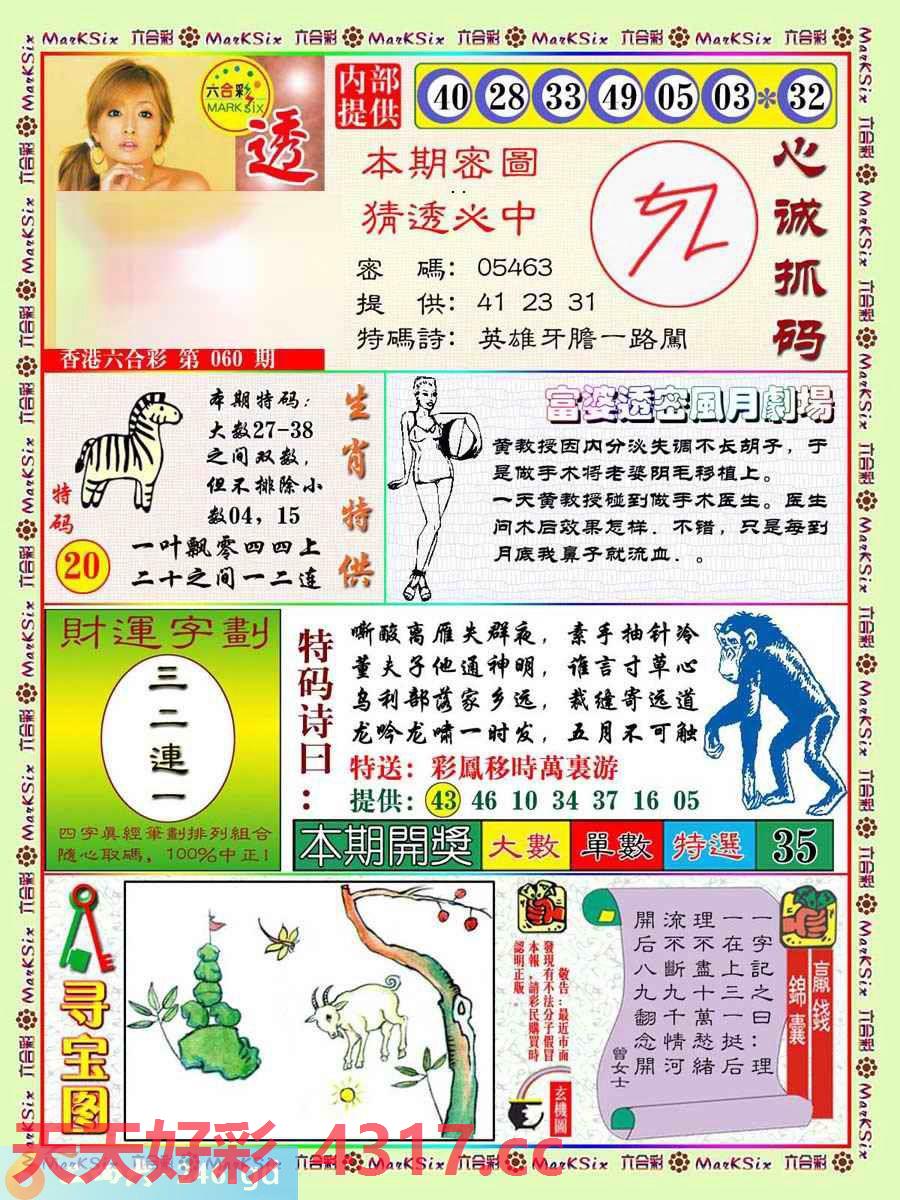 MarKSix 六合彩 MarKSix 六合彩 MarKSix 六合彩 MarKSix 六合彩 MarKSix 六合彩
六合彩
MARK six
透
内部
提供
40 28 33 49 05 03 * 32
本期密圖
猜透必中
密 碼：05463
提 供：41 23 31
特碼詩：英雄牙膽一路闖
心诚抓码
香港六合彩 第 060 期
特码
20
本期特码：
大数27-38
之间双数，
但不排除小
数04，15
一叶飘零四四上
二十之间一二连
生肖特供
富婆透密風月劇場
黄教授因内分淡失调不长胡子，于
是做手术将老婆阴毛移植上。
一天黄教授碰到做手术医生。医生
问术后效果怎样．不错，只是每到
月底我鼻子就流血．。
財運字劃
三二連一
四字眞經筆劃排列組合
隨心取碼，100%中正！
特码诗曰：
嘶酸离雁失群夜，素手抽针冷
董夫子他通神明，谁言寸草心
乌利部落家乡远，裁缝寄远道
龙吟龙啸一时发，五月不可触
特送：彩鳳移時萬裏游
提供：43 46 10 34 37 16 05
本期開獎 大數 單數 特選 35
寻宝图
敬告：最近市面
發現有不法分子假冒
本報，請彩民購買時
認明正版。
玄機圖
一字記之曰：理
一在上三一挺后
理不盡十萬愁緒
流不斷九千情河
開后八九翻念開
曾女士
贏錢
錦囊
天天好彩 4317.cc
MarKSix 六合彩 MarKSix 六合彩 MarKSix 六合彩